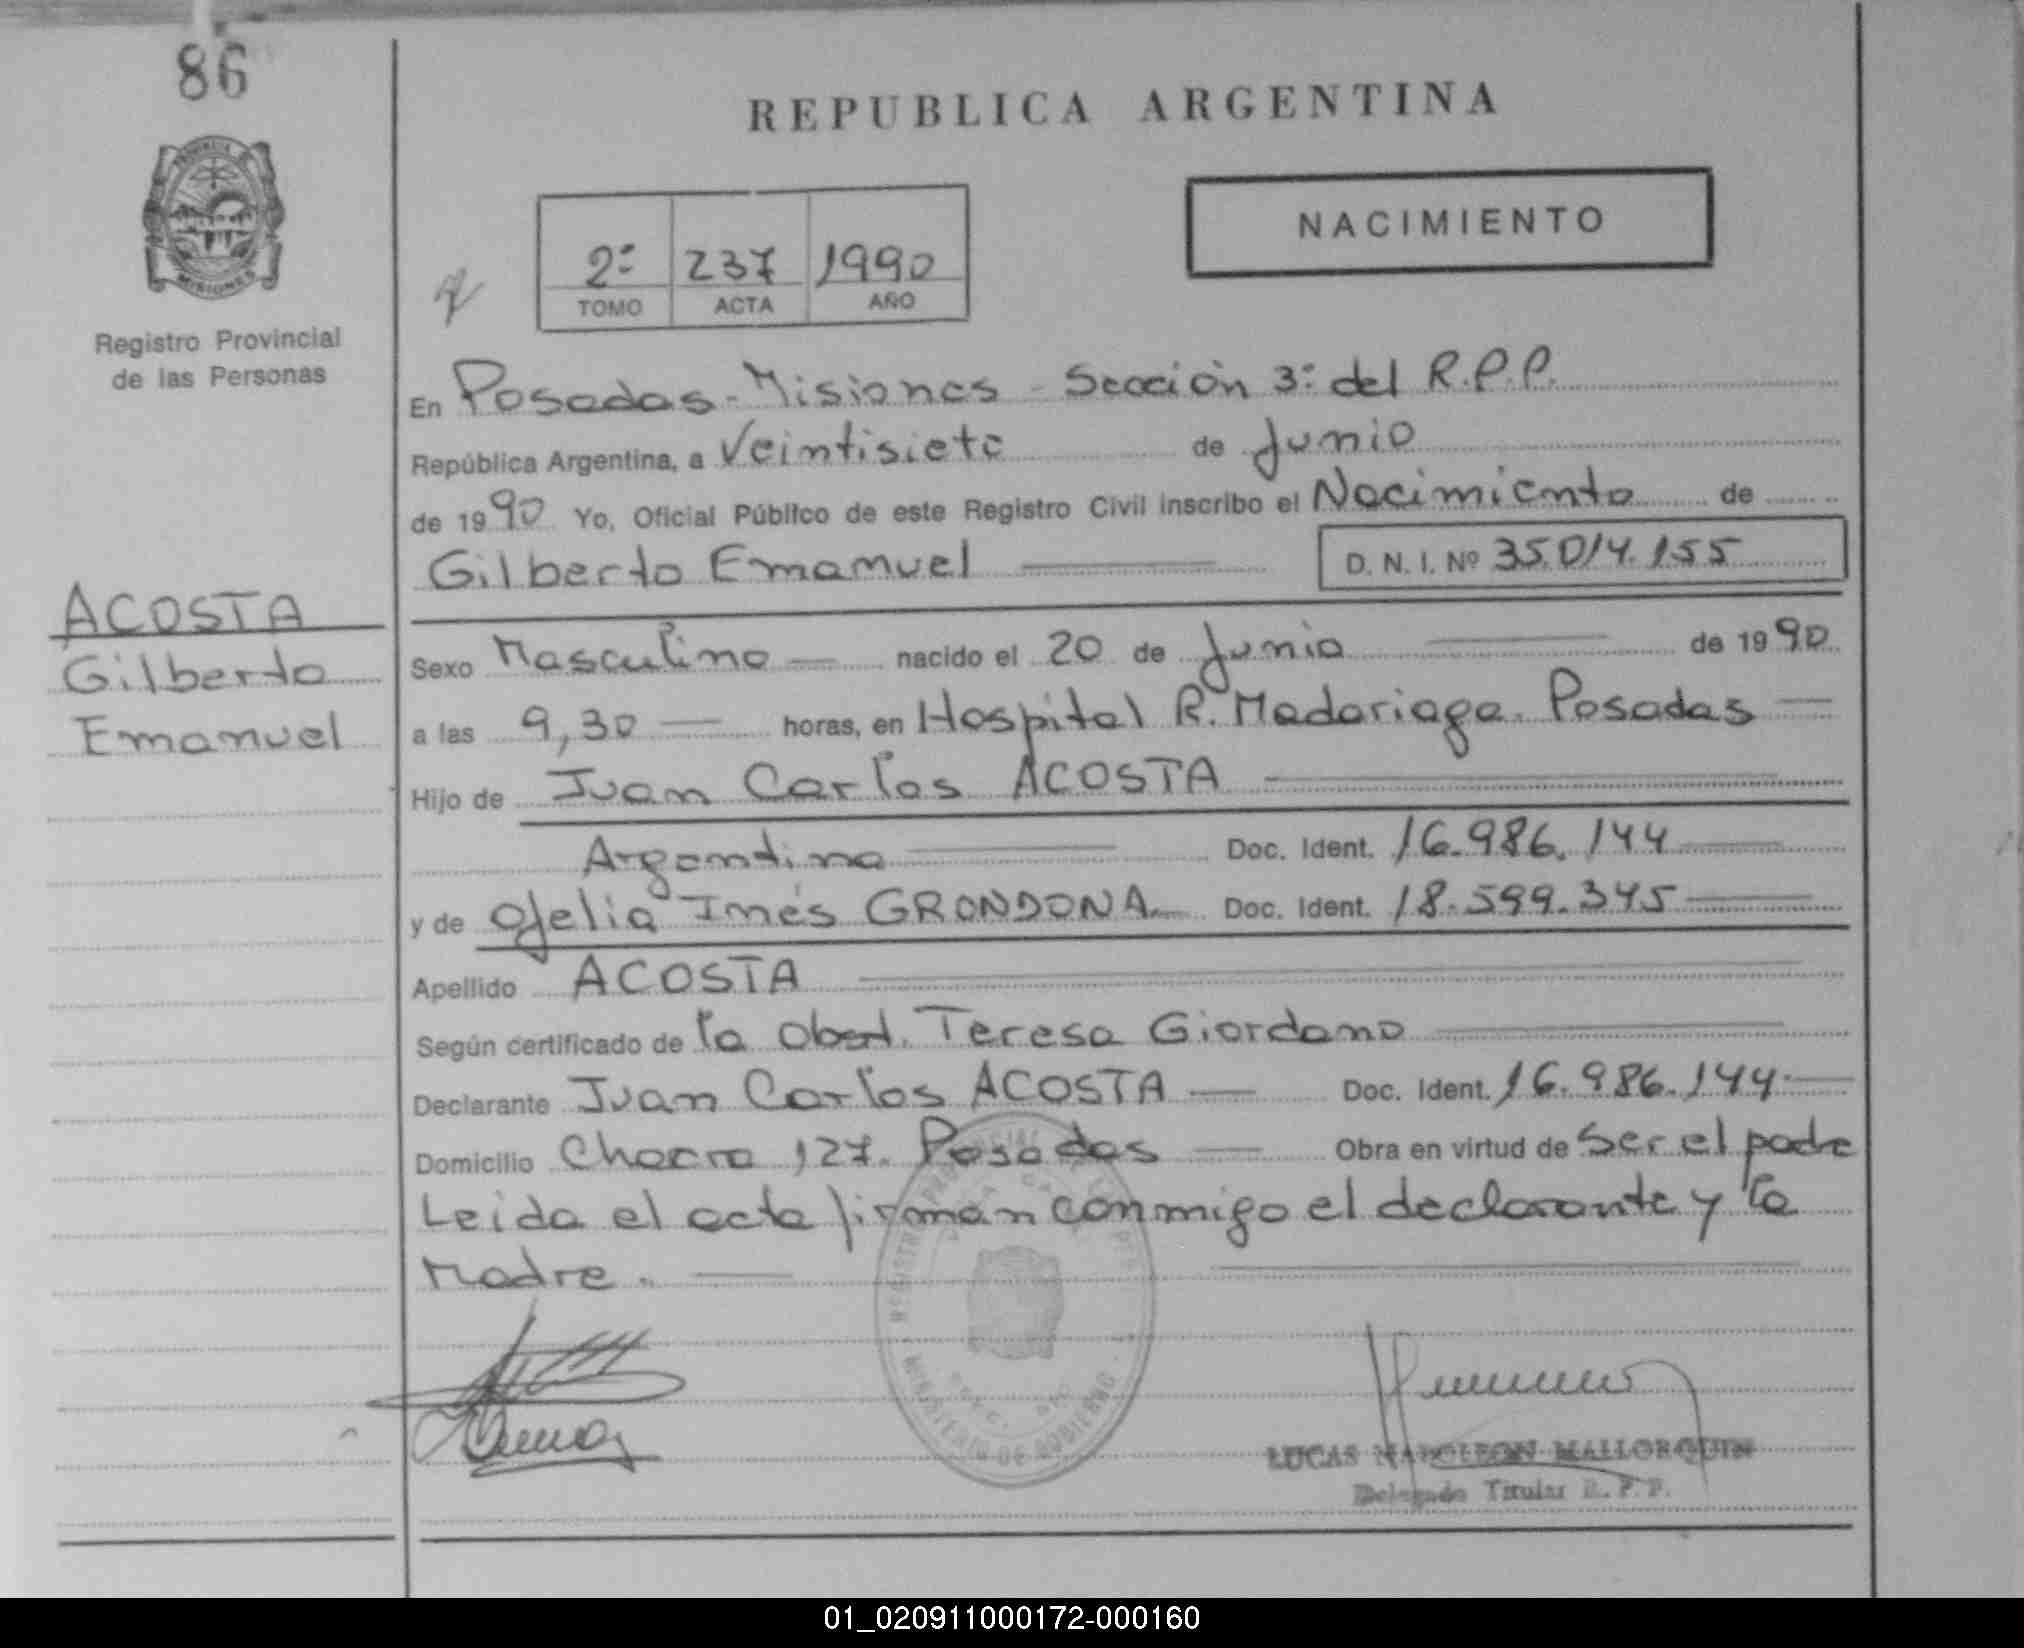 86
PROVINCIA DE
MISIONES
Registro Provincial
de las Personas
ACOSTA
Gilberto
Emanuel
REPUBLICA ARGENTINA
NACIMIENTO
2º 237 1990
TOMO ACTA AÑO
En Posadas - Misiones - Sección 3º del R.P.P.
República Argentina, a Veintisiete de Junio
de 1990 Yo, Oficial Público de este Registro Civil inscribo el Nacimiento de
Gilberto Emanuel D. N. I. Nº 35.014.155
Sexo Masculino nacido el 20 de Junio de 1990
a las 9,30 horas, en Hospital R. Madariaga. Posadas
Hijo de Juan Carlos ACOSTA
Argentino Doc. Ident. 16.986.144
y de Ofelia Inés GRONDONA Doc. Ident. 18.599.345
Apellido ACOSTA
Según certificado de la Obst. Teresa Giordano
Declarante Juan Carlos ACOSTA Doc. Ident. 16.986.144
Domicilio Chacra 127. Posadas Obra en virtud de Ser el padre
Leida el acta firman conmigo el declarante y la
Madre.
MINISTERIO DE GOBIERNO
LUCAS NAPOLEON MALLORQUIN
Delegado Titular R. P. P.
01_020911000172-000160